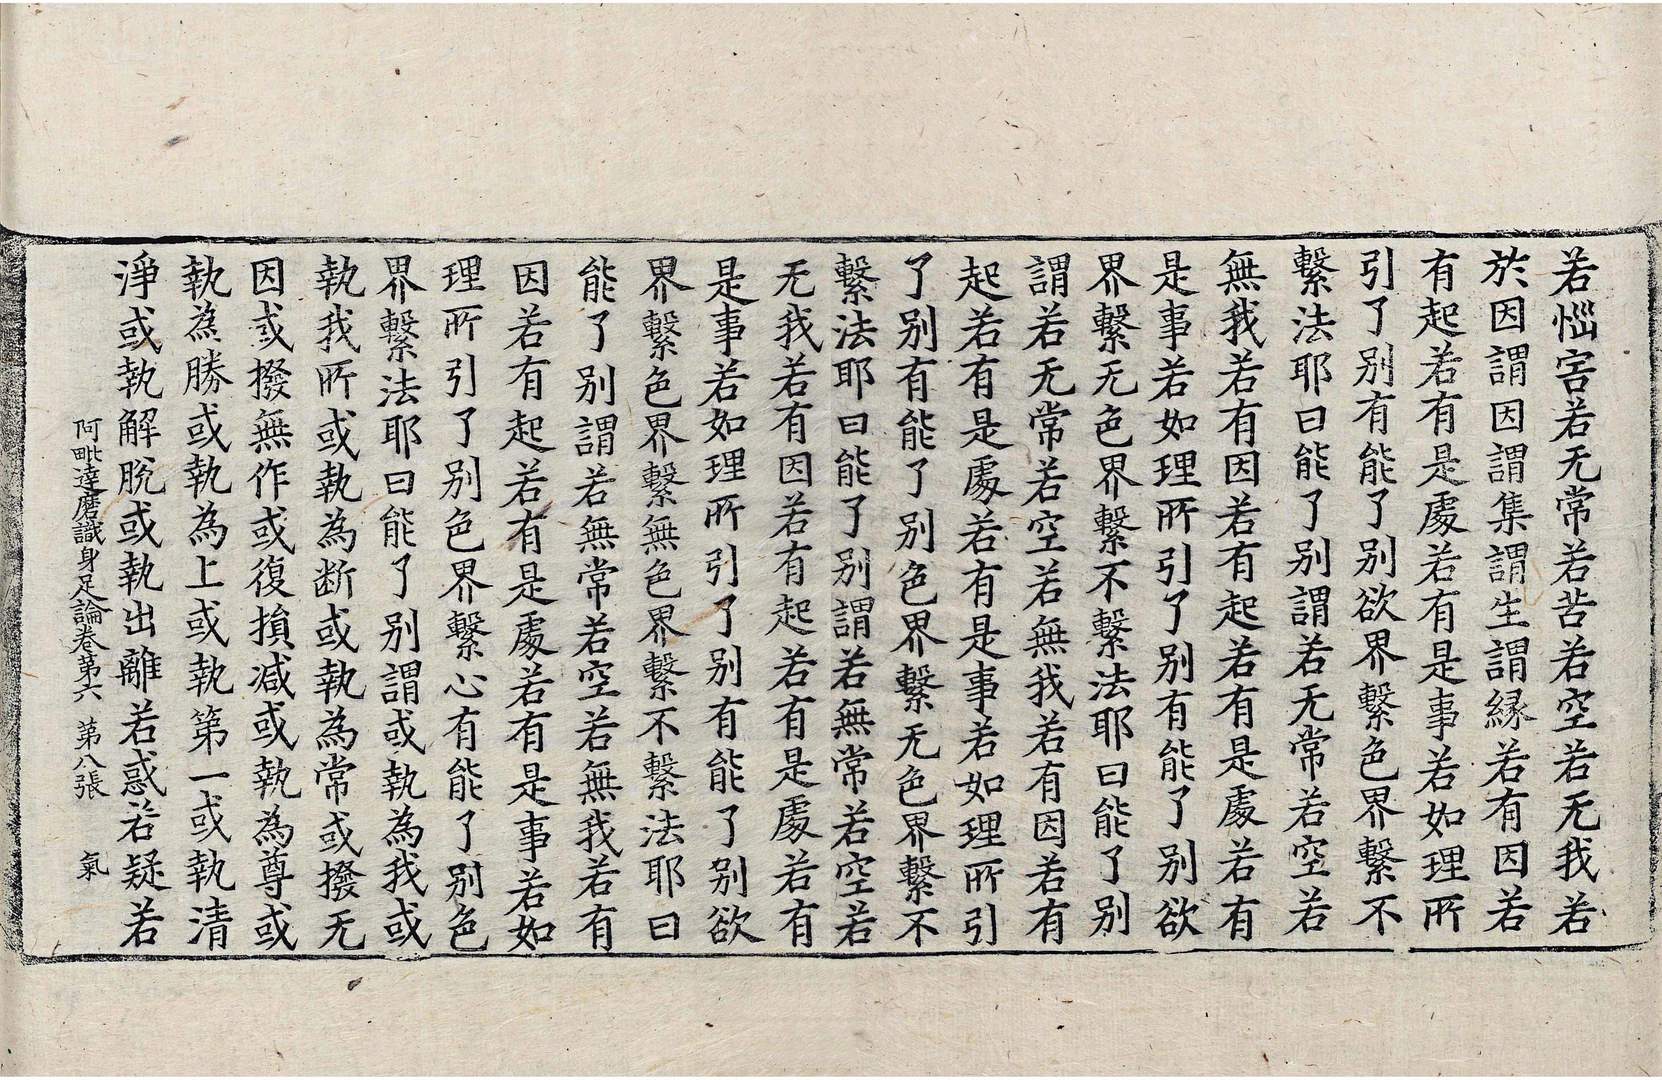 若惱害若无常若苦若空若无我若
於因謂因謂集謂生謂縁若有因若
有起若有是處若有是事若如理所
引了别有能了别欲界繫色界繫不
繫法耶曰能了别謂若无常若空若
無我若有因若有起若有是處若有
是事若如理所引了别有能了别欲
界繫无色界繫不繫法耶曰能了别
謂若无常若空若無我若有因若有
起若有是處若有是事若如理所引
了别有能了别色界繫无色界繫不
繫法耶曰能了别謂若無常若空若
无我若有因若有起若有是處若有
是事若如理所引了别有能了别欲
界繫色界繫無色界繫不繫法耶曰
能了别謂若無常若空若無我若有
因若有起若有是處若有是事若如
理所引了别色界繫心有能了别色
界繫法耶曰能了别謂或執為我或
執我所或執為断或執為常或撥无
因或撥無作或復損减或執為尊或
執為勝或執為上或執第一或執清
淨或執解脫或執出離若惑若疑若
阿毗達磨識身足論卷第六 第八張 氣